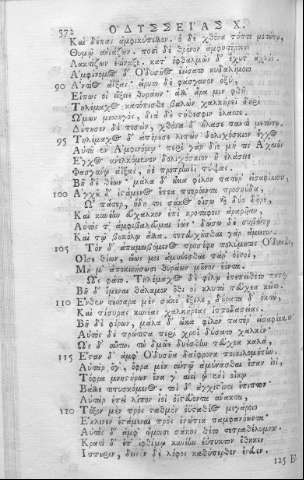 572 ΟΔΥΣΣΕΙΑΣ Χ.
Καὶ δέπας ἀμφικύπελλον. ὁ δὲ χθόνα τύπτε μετώπῳ,
Θυμῷ ἀνιάζων. ποσὶ δὲ θρόνον ἀμφοτέροισι
Λακτίζων ἐτίναξε. κατ' ὀφθαλμῶν δ' ἔχυτ' ἀχλύς.
Ἀμφίνομος δ' Ὀδυσῆος ἐείσατο κυδαλίμοιο
90 Ἀντίος ἀΐξας· εἴρυτο δὲ φάσγανον ὀξύ,
Εἴπως οἱ εἴξειε θυράων· ἀλλ' ἄρα μιν φθῆ
Τηλέμαχος κατόπισθε βαλὼν χαλκήρεϊ δουρὶ
Ὤμων μεσσηγὺς, διὰ δὲ στήθεσφιν ἔλασσε.
Δούπησεν δὲ πεσὼν, χθόνα δ' ἤλασε παντὶ μετώπῳ.
95 Τηλέμαχος δ' ἀπόρουσε λιπὼν δολιχόσκιον ἔγχος
Αὐτοῦ ἐν Ἀμφινόμῳ· περὶ γὰρ δίε μή τις Ἀχαιῶν
Ἔγχος ἀνελκόμενον δολιχόσκιον ἢ ἐλάσειε
Φασγάνῳ ἀΐξας, ἠὲ προπρηνέϊ τύψας.
Βῆ δὲ θέειν· μάλα δ' ὦκα φίλον πατέρ' εἰσαφίκανε.
100 Ἀγχοῦ δ' ἱστάμενος ἔπεα πτερόεντα προσηύδα,
Ὦ πάτερ, ἤδη τοι σάκος οἴσω καὶ δύο δοῦρε,
Καὶ κυνέην πάγχαλκον ἐπὶ κροτάφοις ἀραρυῖαν,
Αὐτός τ' ἀμφιβαλεῦμαι ἰών· δώσω δὲ συβώτῃ
Καὶ τῷ βουκόλῳ ἄλλα. τετευχῆσθαι γὰρ ἄμεινον.
105 Τὸν δ' ἀπαμειβόμενος προσέφη πολύμητις Ὀδυσσεύς,
Οἶσε θέων, εἵως μοι ἀμύνεσθαι πάρ' ὀϊστοί,
Μή μ' ἀποκινήσωσι θυράων μοῦνον ἐόντα.
Ὣς φάτο. Τηλέμαχος δὲ φίλῳ ἐπεπείθετο πατρί.
Βῆ δ' ἴμεναι θάλαμον ὅθι οἱ κλυτὰ τεύχεα κεῖτο.
110 Ἔνθεν τέσσαρα μὲν σάκε' ἔξελε, δούρατα δ' ὀκτώ,
Καὶ πίσυρας κυνέας χαλκήρεας ἱπποδασείας.
Βῆ δὲ φέρων, μάλα δ' ὦκα φίλον πατέρ' εἰσαφίκανεν.
Αὐτὸς δὲ πρώτιστα περὶ χροῒ δύσατο χαλκόν·
Ὣς δ' αὔτως τὼ δμῶε δυέσθην τεύχεα καλά,
115 Ἔσταν δ' ἀμφ' Ὀδυσῆα δαΐφρονα ποικιλομήτην.
Αὐτὰρ ὅγ', ὄφρα μὲν αὐτῷ ἀμύνεσθαι ἔσαν ἰοί,
Τόφρα μνηστήρων ἕνα γ' αἰεὶ ᾧ ἐνὶ οἴκῳ
Βάλλε τιτυσκόμενος. τοὶ δ' ἀγχιστῖνοι ἔπιπτον
Αὐτὰρ ἐπεὶ λίπον ἰοὶ ὀϊστεύοντα ἄνακτα,
120 Τόξον μὲν πρὸς σταθμὸν ἐϋσταθέος μεγάροιο
Ἔκλινεν ἑστάμεναι πρὸς ἐνώπια παμφανόωντα.
Αὐτὸς δ' ἀμφ' ὤμοισι σάκος θέτο τετραθέλυμνον.
Κρατὶ δ' ἐπ' ἰφθίμῳ κυνέην εὔτυκτον ἔθηκεν
Ἵππουριν, δεινὸν δὲ λόφος καθύπερθεν ἔνευεν.
125 Ε